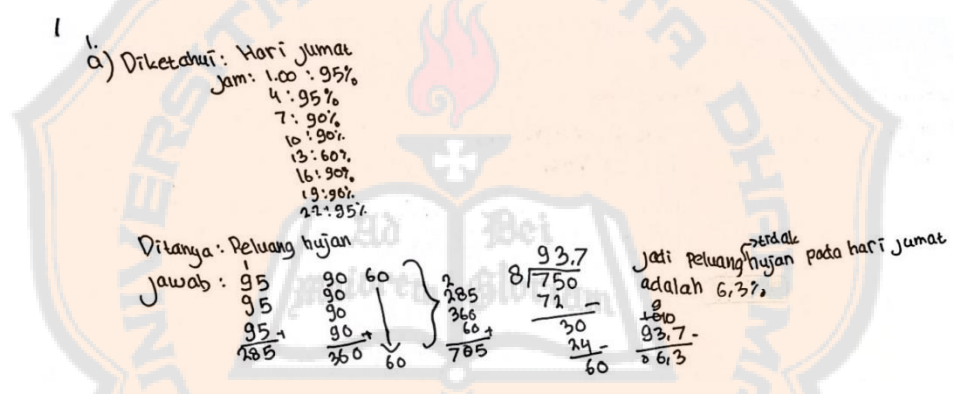 1
1.
a) Diketahui: Hari jumat
Jam: 1.00 : 95%
4 : 95%
7 : 90%
10 : 90%
13 : 60%
16 : 90%
19 : 90%
22 : 95%
Ditanya : Peluang hujan
Jawab : 95 90 60
95 90
95 + 90
285 90 +
360
60
2
285
360
60 +
705
93.7
8 750
72 -
30
24 -
60
Jadi peluang →tidak hujan pada hari jumat
adalah 6,3%
9
93,7 -
06,3
UNIVERSITA DHARMA
Ad Dei